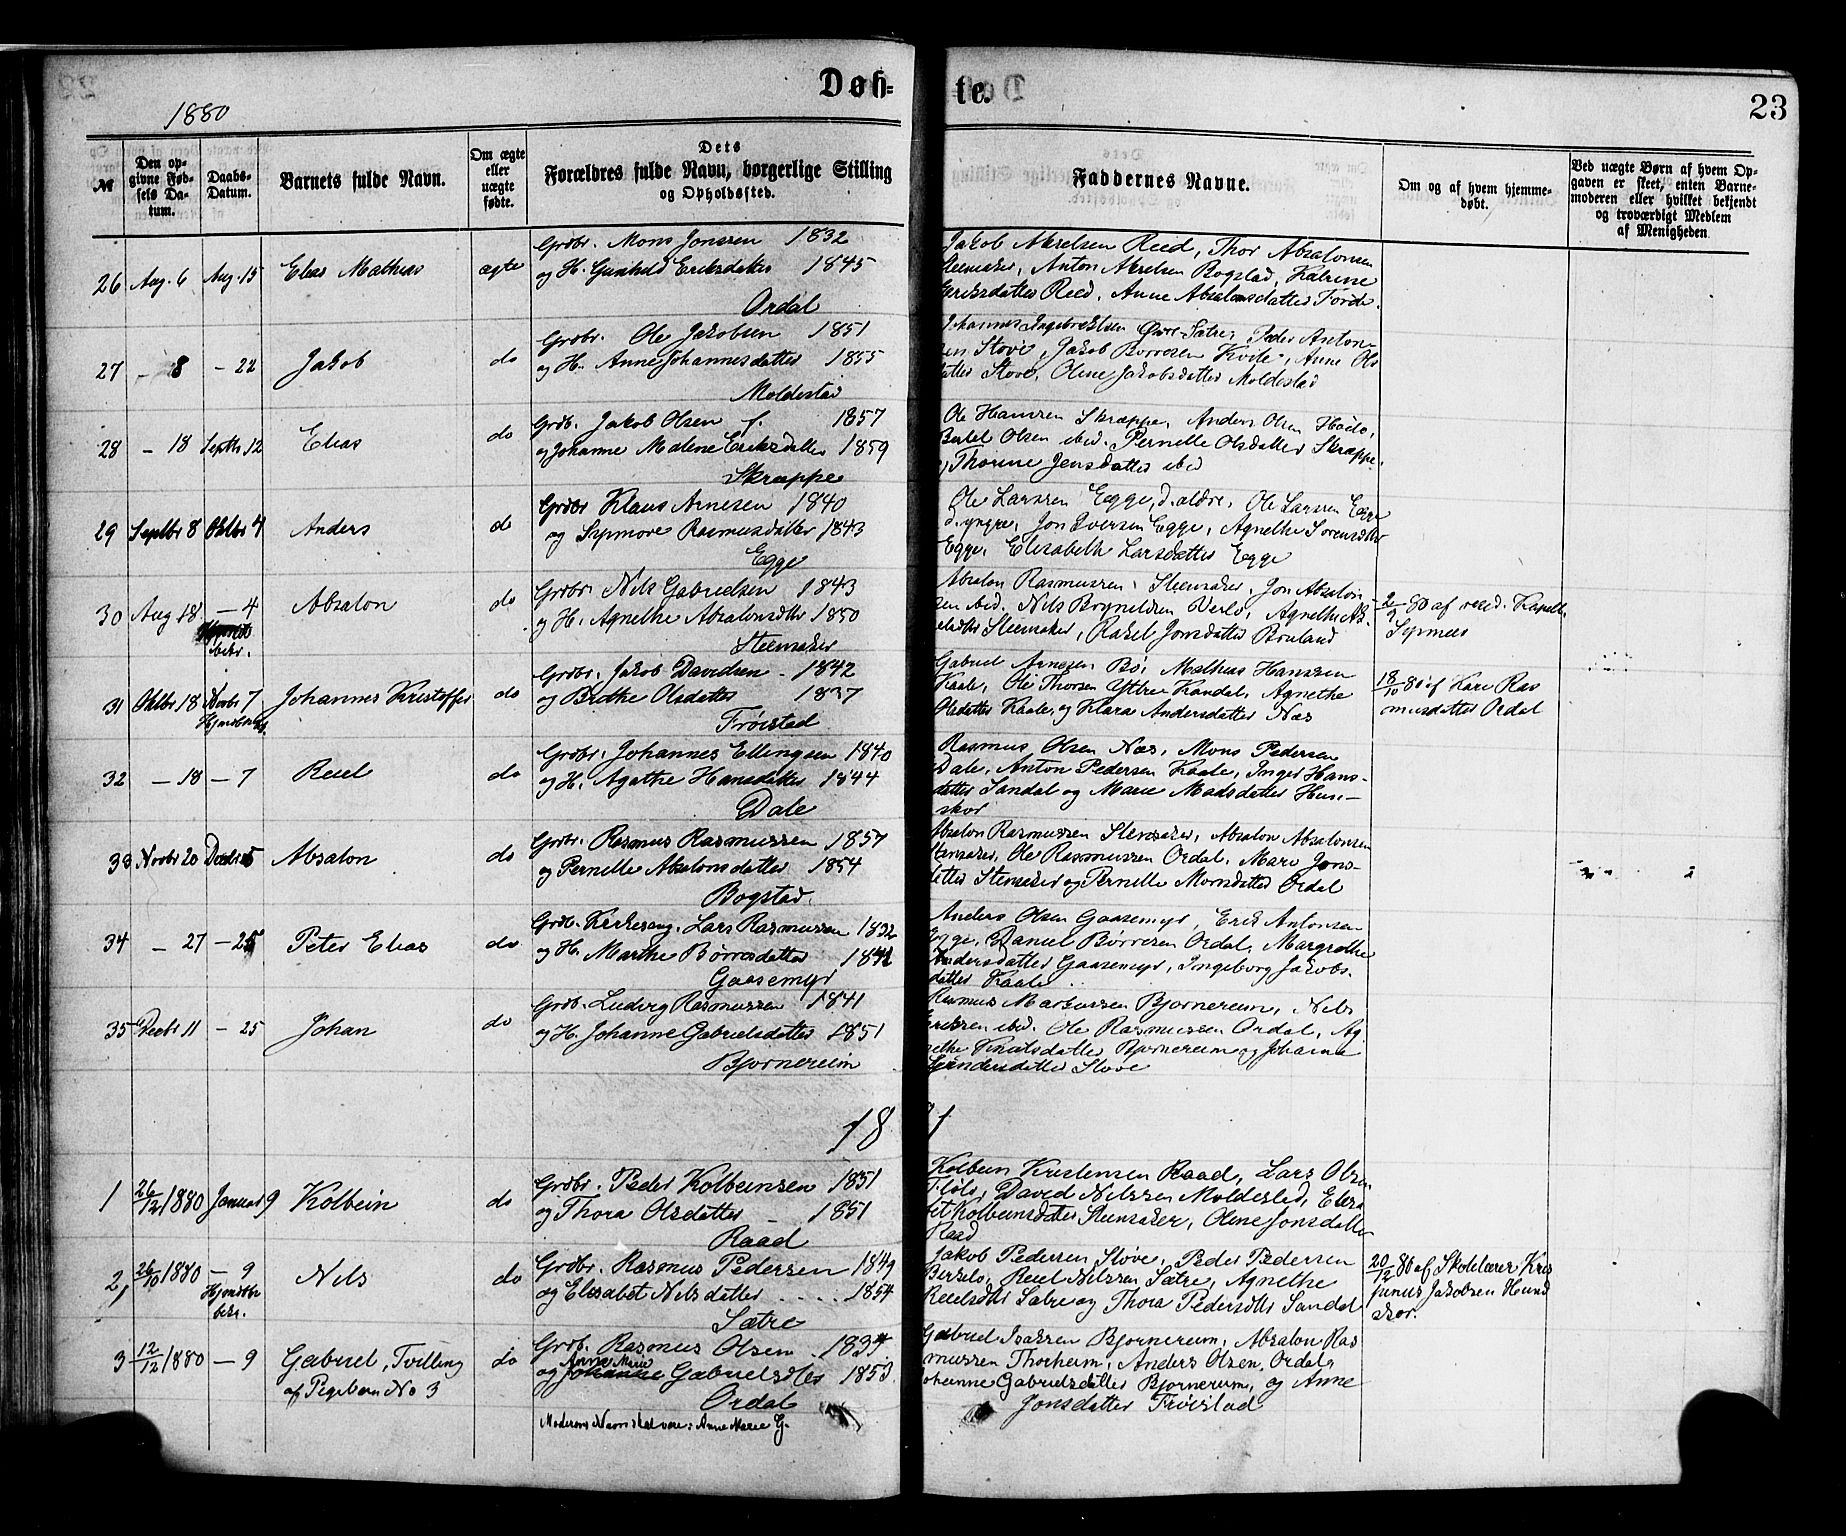 Døb=
te.
23
1880
№
Den op-
givne Fød-
sels Da-
tum.
Daabs-
Datum.
Barnets fulde Navn.
Om ægte
eller
uægte
fødte.
Dets
Forældres fulde Navn, borgerlige Stilling
og Opholdssted.
Faddernes Navne.
Om og af hvem hjemme-
døbt.
Ved uægte Børn af hvem Op-
gaven er skeet, enten Barne-
moderen eller hvilket bekjendt
og troværdigt Medlem
af Menigheden
26 Aug. 6 Aug. 15 Elias Mathias ægte
Grdbr. Mons Jonssen 1832
og H. Gunhild Eriksdatter 1845
Ordal
Jakob Akselsen Reed, Thor Absalonsen
Steensaker, Anton Akselsen Bogstad, Katrine
Eriksdatter Reed, Anne Absalonsdatter Førde.
27 - 8 - 22 Jakob do
Grdbr. Ole Jakobsen 1851
og H. Anne Johannesdatter 1855
Moldestad
Johannes Ingebrektsen Øvre-Sætre, Peder Anton-
sen Støve, Jakob Børresen Kvile, Anne Ols
datter Støve, Oline Jakobsdatter Moldestad
28 - 18 Septbr 12 Elias do
Grdb. Jakob Olsen f. 1857
og Johanne Malene Eriksdatter 1859
Skræppe
Ole Hanssen Skræppe, Anders Olsen
Bertel Olsen ibid. Pernille Olsdatter Skræppe,
Thorine Jensdatter ibid
29 Septbr 8 Oktbr 4 Anders do
Grdbr Klaus Arnesen 1840
og Synnøve Rasmusdatter 1843
Egge
Ole Larssen Egge, d. ældre, Ole Larssen Egge
d. yngre, Jon Iversen Egge, Agnethe Sørensdtter
Egge, Elisabeth Larsdatter Egge
30 Aug 18 - 4 Absalon do
Grdbr. Nils Gabrielsen 1843
og H. Agnethe Absalonsdtter 1850
Steensaker
Absalon Rasmussen Steensaker, Jon Absalon
sen ibid. Nils Brynildsen Verlo, Agnethe Ab-
Steensaker, Rakel Jonsdatter Bruland
2/9 80 af resid. Kapellan
31 Oktbr 18 Novbr 7 Johannes Kristoffer do
Grdbr. Jakob Davidsen 1842
og Birthe Olsdatter 1837
Frøistad
Gabriel Arnesen Bø, Mathias Hanssen
Kaale, Ole Thorsen Yttre Handal, Agnethe
Olsdatter Kaale, og Klara Andersdatter Næs
18/10 80 af Kari Ras
musdatter Ordal
32 - 18 - 7 Reiel do
Grdbr. Johannes Ellingsen 1840
og H. Agathe Hansdatter 1844
Dale
Rasmus Olsen Næs, Mons Pedersen
Dale, Anton Pedersen Kaale, Inger Hans-
datter Sandal og Marie Madsdatter Hun-
skor
33 Novbr 20 Decbr 5 Absalon do
Grdbr. Rasmus Rasmussen 1857
og Pernille Absalonsdatter 1854
Bogstad.
Absalon Rasmussen Stensaker, Absalon Absalonsen
Stensaker, Ole Rasmussen Ordal, Mari Jons-
datter Stensaker og Pernille Monsdatter Ordal
34 - 27 - 25 Peter Elias do
Grdb. Kirkesang. Lars Rasmussen 1832
og H. Marthe Børresdatter 1842
Gaasemyr
Anders Olsen Gaasemyr, Erik Antonsen
Egge, Daniel Børresen Ordal, Margrethe
Andersdatter Gaasemyr, Ingeborg Jakobs-
datter Kaale
35 Decbr 11 - 25 Johan do
Grdb. Ludvig Rasmussen 1841
og H. Johanne Gabrielsdatter 1851
Bjørnereim
Rasmus Markussen Bjørnereim, Nils
Eriksen ibid. Ole Rasmussen Ordal, Ag
nethe Knutsdatter Bjørnereim og Johanna
Støve
18
1 26/12 1880 Januar 9 Kolbein do
Grdbr. Peder Kolbeinsen 1851
og Thora Olsdatter - 1851
Raad
Kolbein Kristensen Raad, Lars Olsen
David Nilssen Moldestad, Elisa
bet Kolbeinsdatter Steensaker, Oline Jonsdatter
Raad
2, 26/10 1880 - 9 Nils do
Hjemdbt
bekr.
Grdbr. Rasmus Pedersen 1849
og Elisabet Nilsdatter ..... 1854
Sætre
Jakob Pedersen Støve, Peder Pedersen
Berkelo, Reiel Nilssen Sætre, Agnethe
Reielsdtter Sætre og Thora Pedersdtter Sandal
20/12 80 af Skolelærer
Jakobsen Hund
skor.
3 12/12 1880 - 9 Gabriel, Tvilling do
af Pigebarn No 3
Grdb. Rasmus Olsen 1834
Anne Marie
og Johanne Gabrielsdtter 1853
Ordal
Moderens Navn skal være: Anne Marie G.
Gabriel Isaksen Bjørnereim, Absalon Ras
mussen Thorheim, Anders Olsen Ordal,
Johanne Gabrielsdatter Bjørnereim, og Anne
Jonsdatter Frøistad